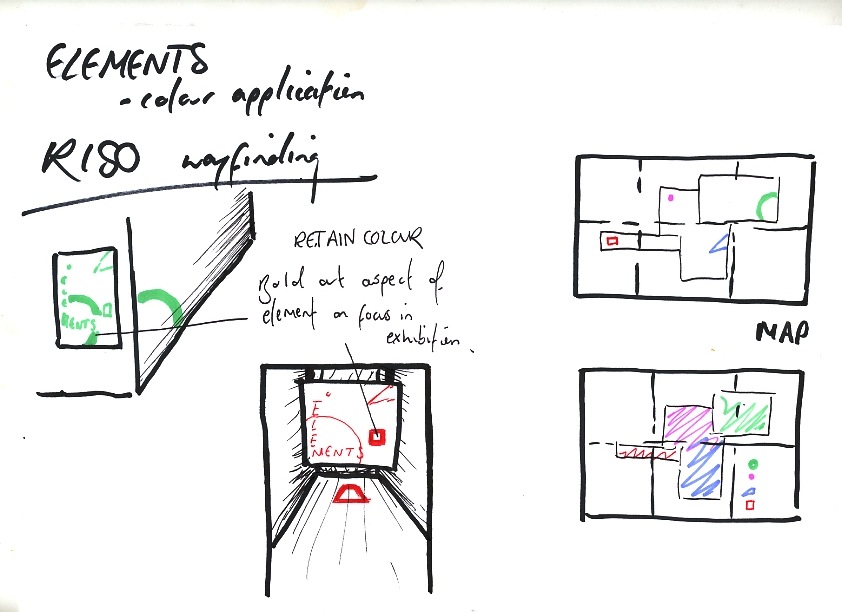 ELEMENTS
- colour application
RISO wayfinding
RETAIN COLOUR
Bold out aspect of
element on focus in
exhibition.
ELEMENTS
ELEMENTS
MAP